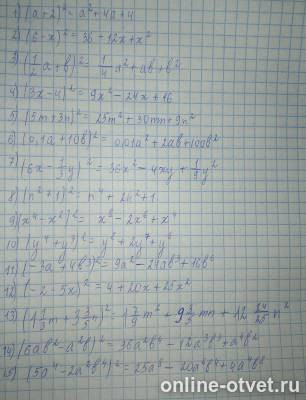 1) (a+2)² = a²+4a+4
2) (6-x)² = 36-12x+x²
3) (1/2 a+b)² = 1/4 a²+ab+b²
4) (3x-4)² = 9x²-24x+16
5) (5m+3n)² = 25m²+30mn+9n²
6) (0,1a+10b)² = 0,01a²+2ab+100b²
7) (6x-1/3 y)² = 36x²-4xy+1/9 y²
8) (n²+1)² = n⁴+2n²+1
9) (x⁴-x²)² = x⁸-2x⁶+x⁴
10) (y⁴+y³)² = y⁸+2y⁷+y⁶
11) (-3a+4b³)² = 9a²-24ab³+16b⁶
12) (-2-5x)² = 4+20x+25x²
13) (1 1/3 m+3 3/5 n)² = 1 7/9 m²+9 3/5 mn+12 24/25 n²
14) (6ab²-a²b)² = 36a²b⁴-12a³b³+a⁴b²
15) (5a⁴-2a²b⁴)² = 25a⁸-20a⁶b⁴+4a⁴b⁸
online-otvet.ru